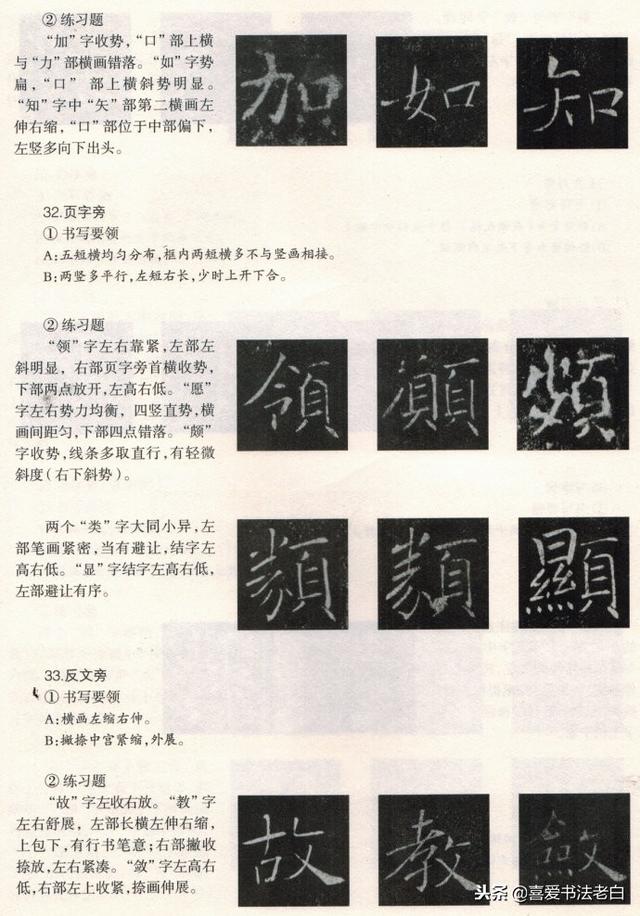 ② 练习题
“加”字收势，“口”部上横
与“力”部横画错落。“如”字势
扁，“口” 部上横斜势明显。
“知”字中“矢”部第二横画左
伸右缩，“口”部位于中部偏下，
左竖多向下出头。
加 如 知
32.页字旁
① 书写要领
A:五短横均匀分布，框内两短横多不与竖画相接。
B:两竖多平行，左短右长，少时上开下合。
② 练习题
“领”字左右靠紧，左部左
斜明显，右部页字旁首横收势，
下部两点放开，左高右低。“愿”
字左右势力均衡，四竖直势，横
画间距匀，下部四点错落。“颇”
字收势，线条多取直行，有轻微
斜度（右下斜势）。
領
两个“类”字大同小异，左
部笔画紧密，当有避让，结字左
高右低。“显”字结字左高右低，
左部避让有序。
顯
33.反文旁
① 书写要领
A:横画左缩右伸。
B:撇捺中宫紧缩，外展。
② 练习题
“故”字左收右放。“教”字
左右舒展，左部长横左伸右缩，
上包下，有行书笔意；右部撇收
捺放，左右紧凑。“敛”字左高右
低，右部左上收紧，捺画伸展。
故 教
头条@喜爱书法老白